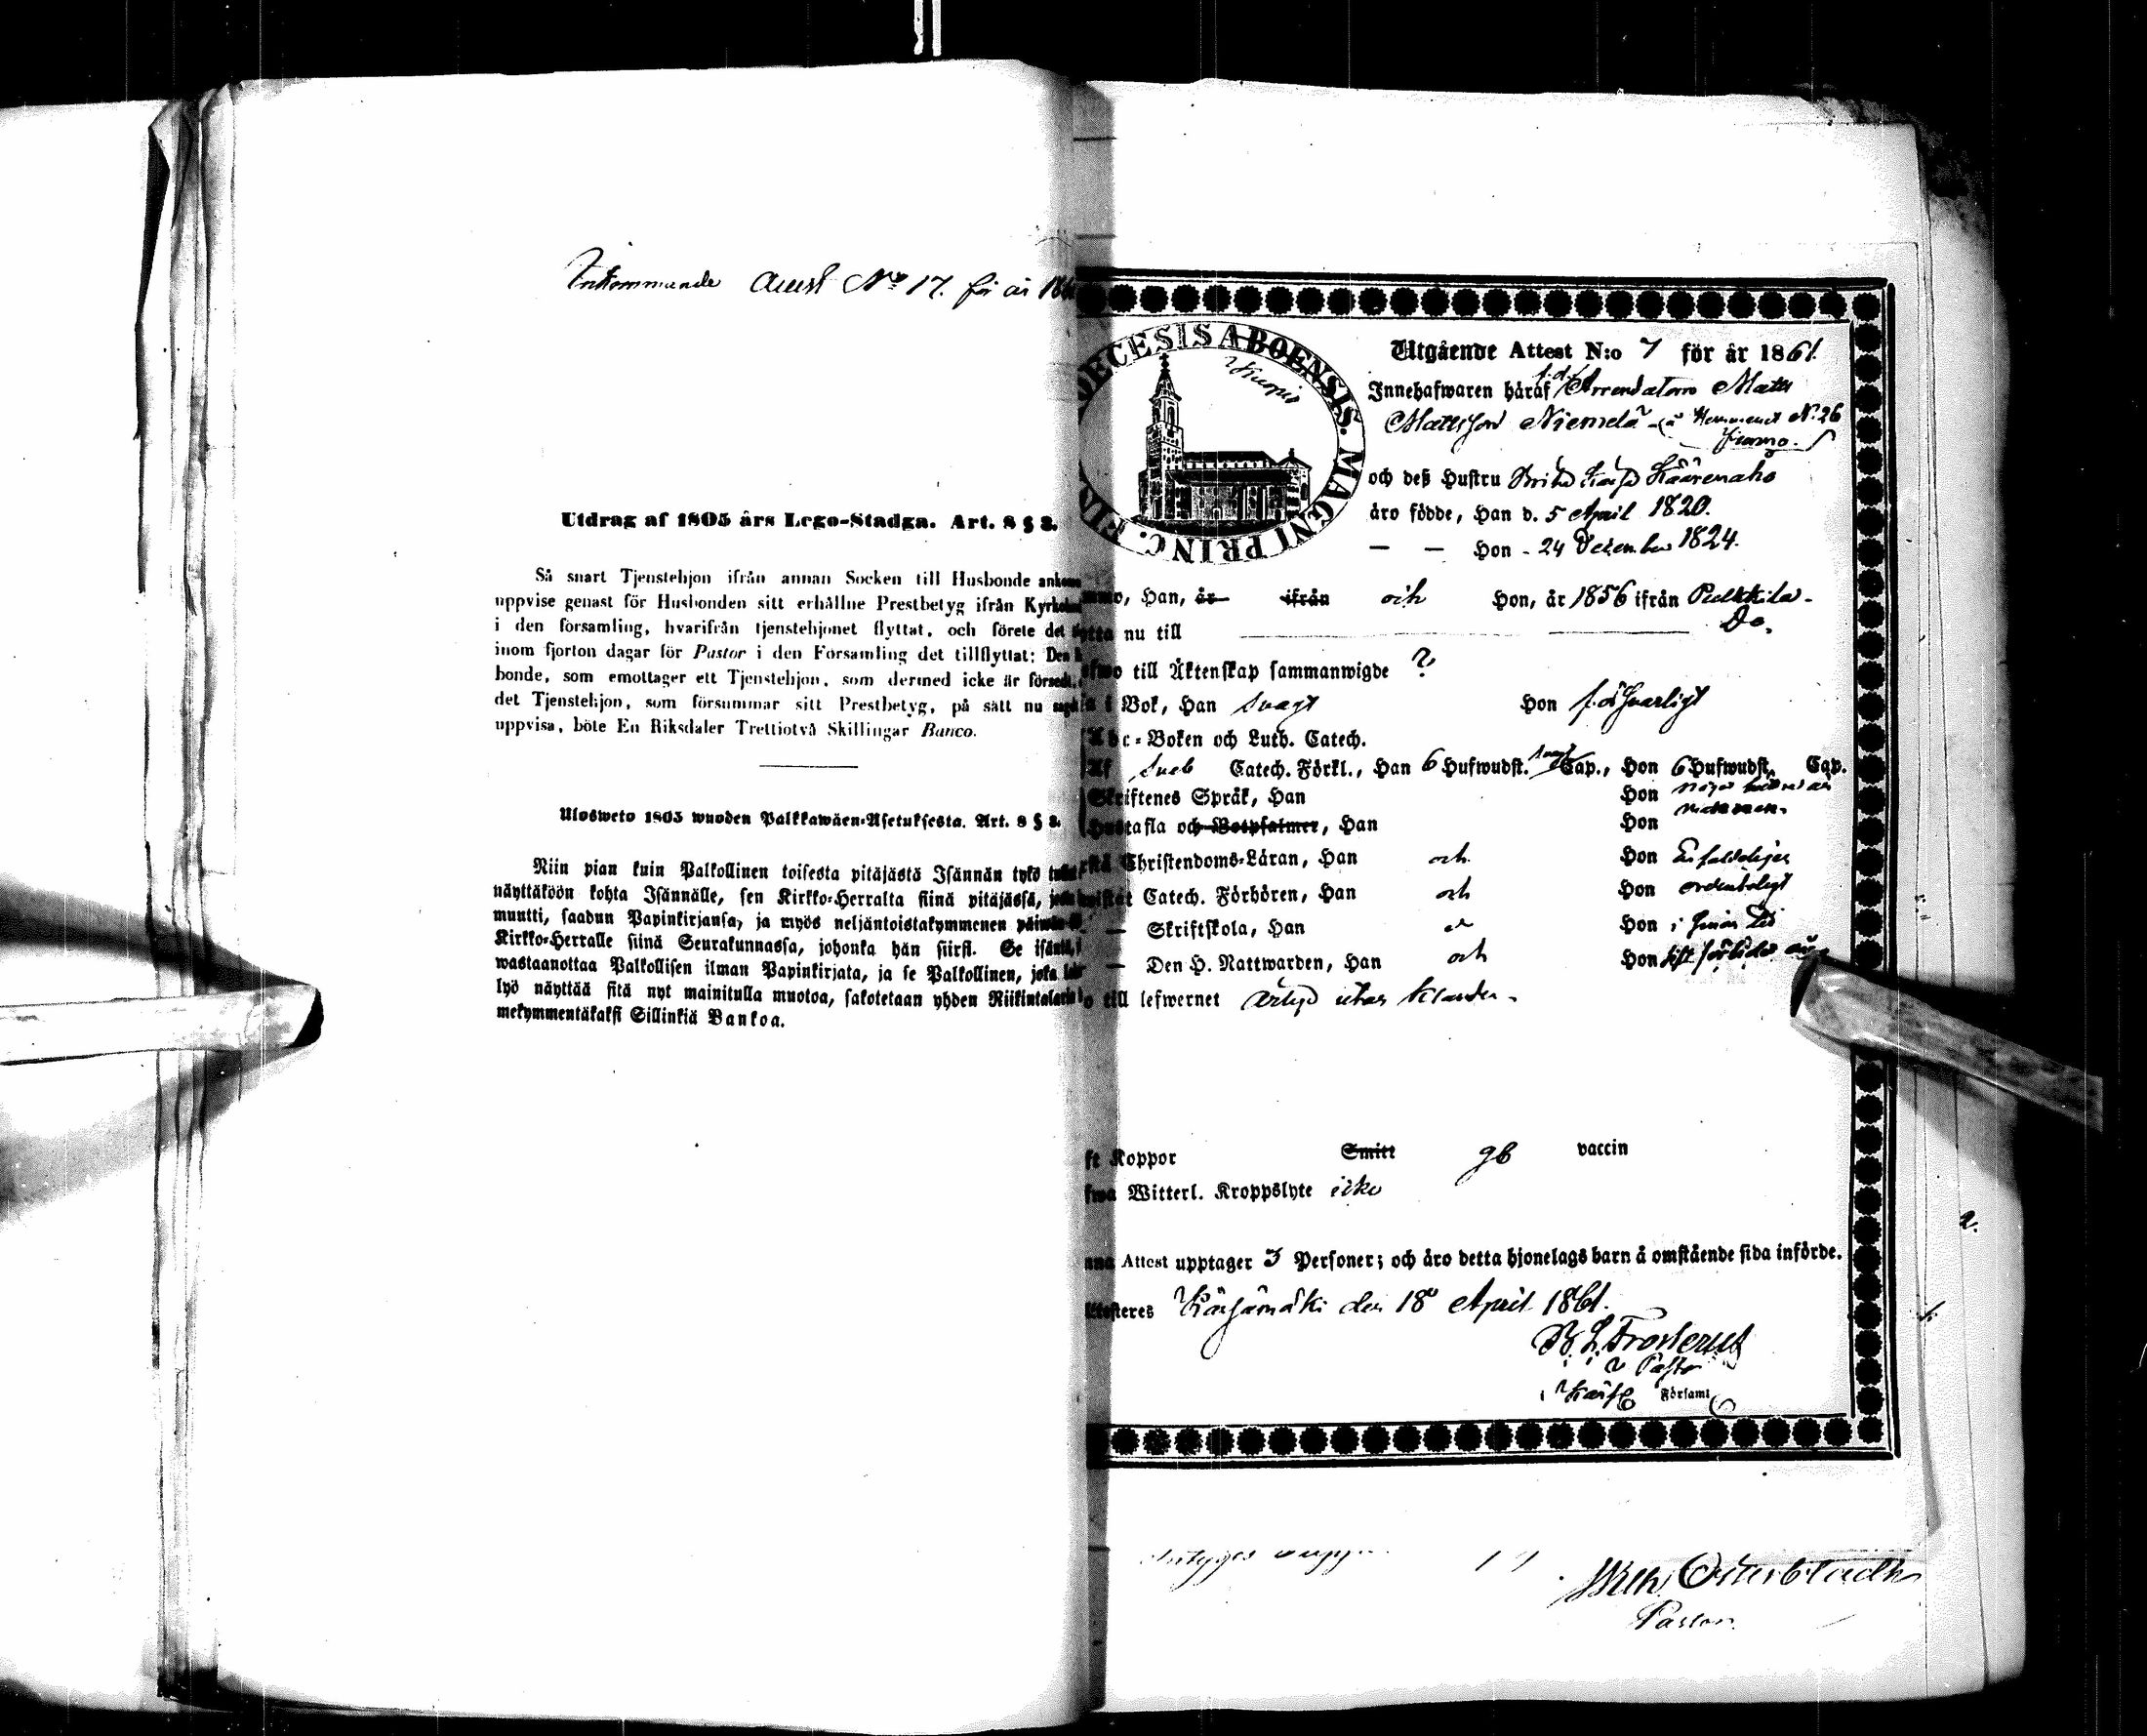 Inkommande Attest No 17. för år 186
Utdrag af 1805 års Lego-Stadga. Art. 8 § 3.
Så snart Tjenstehjon ifrån annan Socken till Husbonde ankom
uppvise genast för Husbonden sitt erhållne Prestbetyg ifrån Kyrko
i den församling, hvarifrån tjenstehjonet flyttat, och förete det
inom fjorton dagar för Pastor i den Församling det tillflyttat; Den
bonde, som emottager ett Tjenstehjon, som dermed icke är försedt,
det Tjenstehjon, som försummar sitt Prestbetyg, på sätt nu sagdt
uppvisa, böte En Riksdaler Trettiotvå Skillingar Banco.
Ulosweto 1805 wuoden Palkkawäen-Asetuksesta. Art. 8 § 3.
Niin pian kuin Palkollinen toisesta pitäjästä Isännän tykö
näyttäköön kohta Isännälle, sen Kirkko-Herralta siinä pitäjässä,
muutti, saadun Papinkirjansa, ja myös neljäntoistakymmenen päiwän
Kirkko-Herralle siinä Seurakunnassa, johonka hän siirsi. Se isäntä,
wastaanottaa Palkollisen ilman Papinkirjata, ja se Palkollinen, joka
lyö näyttää sitä nyt mainitulla muotoa, sakotetaan yhden Riikintalarin
mekymmentäkaksi Sillinkiä Bankoa.
DECESIS ABOENSIS. MAGNI PRINC. FIN
Utgående Attest N:o 7 för år 1861.
Innehafwaren häraf f.d. Arrendatorn Matts
Mattsson Niemelä å Hemmanet N. 26
och deß Hustru Brita Kaisa Käärenaho
äro födde, Han d. 5 April 1820.
— — Hon - 24 December 1824.
Han, år ifrån och Hon, år 1856 ifrån Pulkkila -
nu till Do.
till Äktenskap sammanwigde ?
i Bok, Han svagt Hon försvarligt
Abc-Boken och Luth. Catech.
Af Sveb Catech. Förkl., Han 6 Hufwudst. svagt Cap., Hon 6 Hufwudst. Cap.
Skriftenes Språk, Han Hon
Hustafla och Botpsalmer, Han Hon
Christendoms-Läran, Han och Hon
Catech. Förhören, Han och Hon ordentligt
— Skriftskola, Han Hon i
— Den H. Nattwarden, Han och Hon sist
till lefwernet ärliga utan klander.
Koppor Smitt gb vaccin
Witterl. Kroppslyte icke
Attest upptager 3 Personer; och äro detta hjonelags barn å omstående sida införde.
Kärsämäki den 18 April 1861.
B. L. Frosterus
v Pastor
i Kärs Församl
Wilh. Österbladh
Pastor.